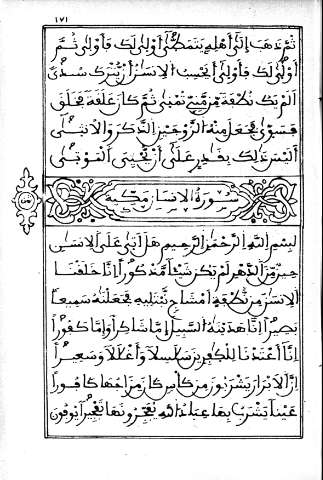 ١٧١
ثم ذهب إلى أهله يتمطى أولى لك فأولى ثم
أولى لك فأولى أيحسب الانسان أن يترك سدى
ألم يك نطفة من مني تمنى ثم كان علقة فخلق
فسوى فجعل منه الزوجين الذكر والانثى
أليس ذلك بقادر على أن يحيي الموتى
سورة الانسان مكية
بسم الله الرحمن الرحيم هل أتى على الانسان
حين من الدهر لم يكن شيئا مذكورا إنا خلقنا
الانسان من نطفة أمشاج نبتليه فجعلناه سميعا
بصيرا إنا هديناه السبيل إما شاكرا وإما كفورا
إنا أعتدنا للكافرين سلاسلا وأغلالا وسعيرا
إن الابرار يشربون من كأس كان مزاجها كافورا
عينا يشرب بها عباد الله يفجرونها تفجيرا يوفون